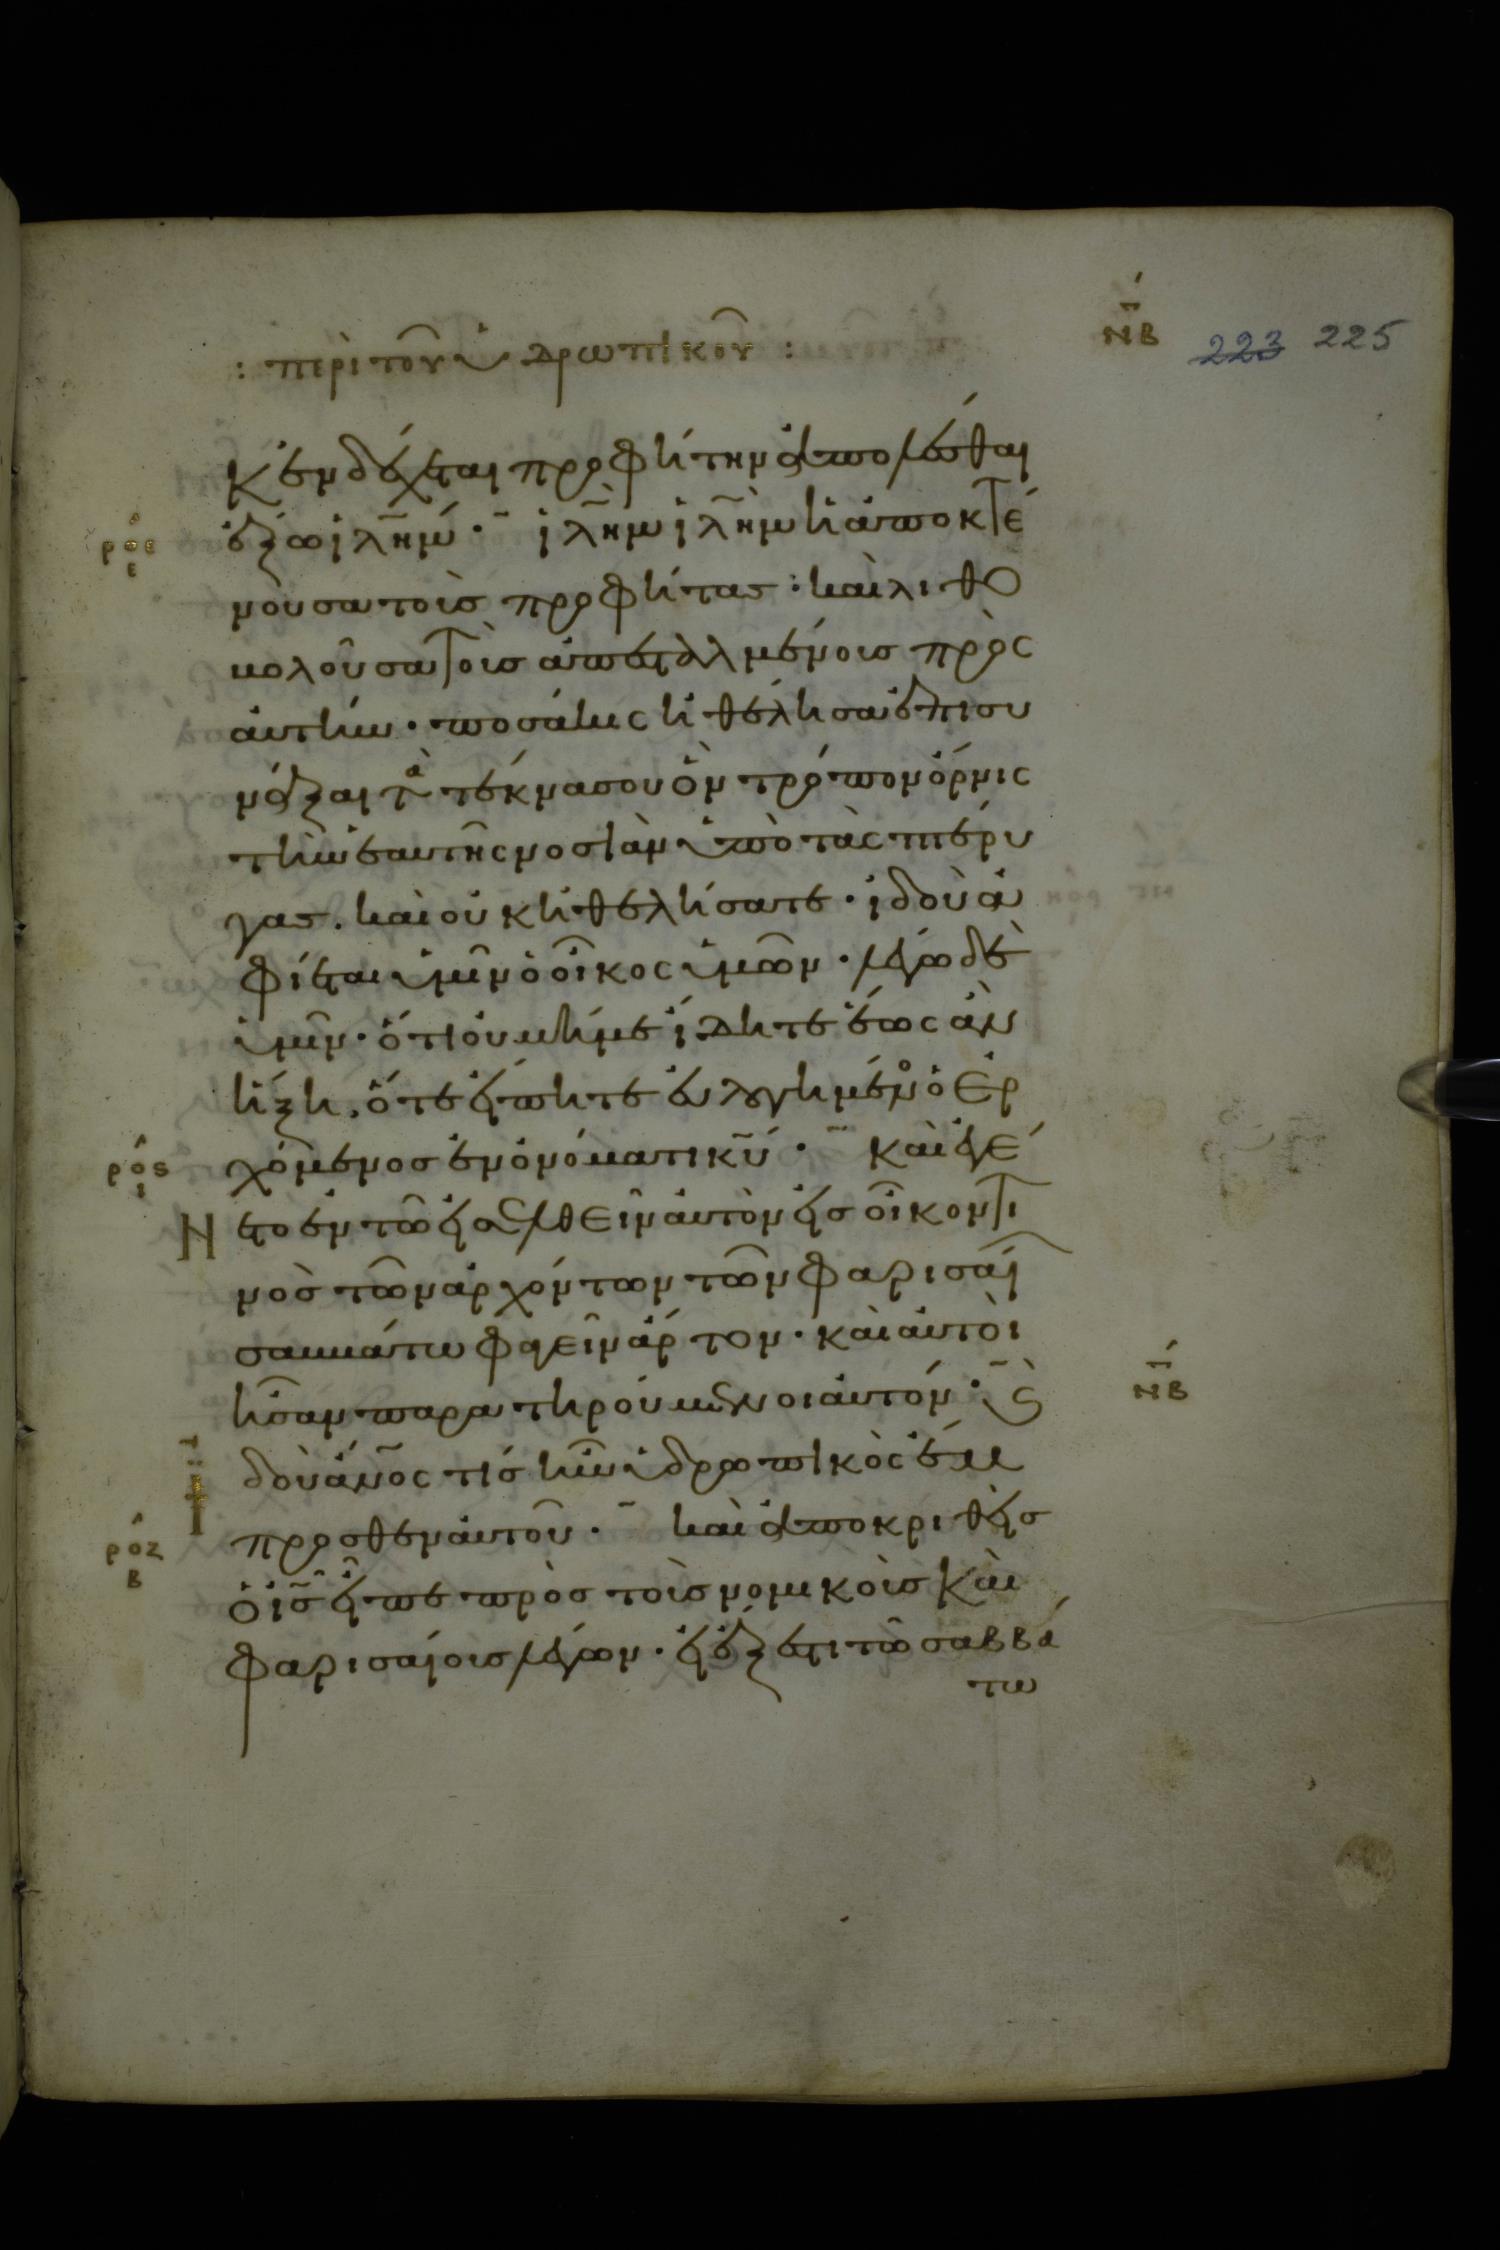 ΝΒ 223 225
: περὶ τοῦ ὑδρωπικοῦ :
κ ἐνδέχεται προφήτην ἀπολέσθαι
ἔξω ἰλ̅η̅μ· ἰλ̅η̅μ ἰλ̅η̅μ ἡ ἀποκτέ
ροε
ε
νουσα τοὺς προφήτας· καὶ λιθο
βολοῦσα τοὺς ἀπεσταλμένους πρὸς
αὐτήν· ποσάκις ἠθέλησα ἐπισυ
νάξαι τὰ τέκνα σου ὃν τρόπον ὄρνις
τὴν ἑαυτῆς νοσιὰν ὑπὸ τὰς πτέρυ
γας. καὶ οὐκ ἠθελήσατε· ἰδοὺ ἀ
φίεται ὑμῖν ὁ οἶκος ὑμῶν· λέγω δὲ
ὑμῖν· ὅτι οὐ μή με ἴδητε ἕως ἂν
ἥξῃ, ὅτε εἴπητε εὐλογημένος ὁ ἐρ
χόμενος ἐν ὀνόματι κ̅υ̅· καὶ ἐγέ
ρος
ι
νετο ἐν τῷ εἰσελθεῖν αὐτὸν εἰς οἶκόν τι
Ν
νος τῶν ἀρχόντων τῶν φαρισαί
σαββάτω φαγεῖν ἄρτον· καὶ αὐτοὶ
ἦσαν παρατηρούμενοι αὐτόν· κ ἰ
ΝΒ
δοὺ ἄν̅ος τὶς ἦν ὑδρωπικὸς ἔμ
Τ
προσθεν αὐτοῦ· καὶ ἀποκριθεὶς
ροζ
β
ὁ ι̅ς̅ εἶπε πρὸς τοὺς νομικοὺς καὶ
φαρισαίους λέγων· εἰ ἔξεστι τῶ σαββά
τω